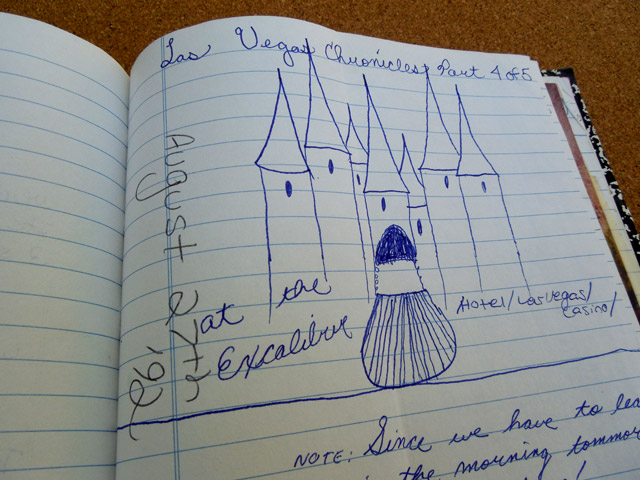 Las Vegas Chronicles Part 4 of 5
August 27th '92
at the
Excalibur
Hotel/Las Vegas/
Casino/
NOTE: Since we have to
the morning tommor